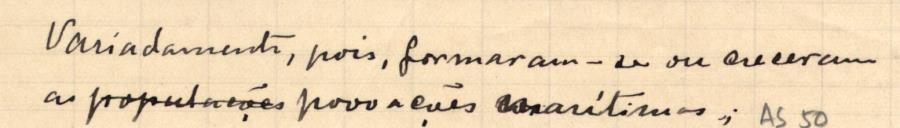 Variadamente, pois, formaram-se ou creceram
as populações povoações marítimas ; AS 50